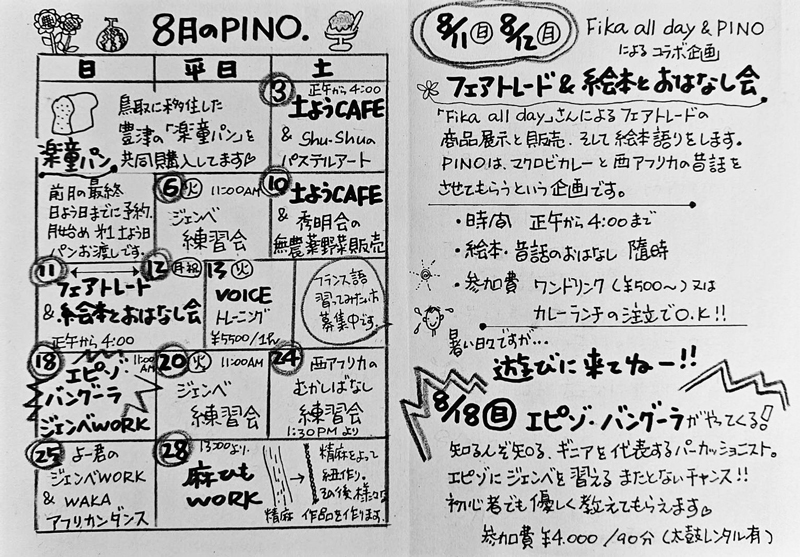 8月のPINO.
日 平日 土
楽童パン
鳥取に移住した
豊津の「楽童パン」を
共同購入してます♡
3 正午から4:00
土ようCAFE
& Shu-Shuの
パステルアート
前月の最終
日よう日までに予約.
月始め 第1土よう日
パンお渡しです。
6 火 11:00AM
ジェンベ
練習会
10 土ようCAFE
& 秀明会の
無農薬野菜販売
11 12 月祝
フェアトレード
& 絵本とおはなし会
正午から4:00
13 火
VOICE
トレーニング
¥5500/1h
フランス語
習ってみたい方
募集中です
18 11:00AM
エピゾ・
バングーラ
ジェンベWORK
20 火 11:00AM
ジェンベ
練習会
24 西アフリカの
むかしばなし
練習会
1:30PMより
25 よー君の
ジェンベWORK
& WAKA
アフリカンダンス
28 13:00より.
麻ひも
WORK
精麻
精麻をよって
紐作り。
その後様々な
作品を作ります.
8/11 日 8/12 月
Fika all day & PINO
によるコラボ企画
フェアトレード & 絵本とおはなし会
「Fika all day」さんによるフェアトレードの
商品展示と販売、そして絵本語りをします。
PINOは、マクロビカレーと西アフリカの昔話を
させてもらうという企画です。
・時間 正午から4:00まで
・絵本・昔話のおはなし 随時
・参加費 ワンドリンク(¥500〜)又は
カレーランチの注文でO.K!!
暑い日々ですが…
遊びに来てねー!!
8/18 日 エピゾ・バングーラがやってくる!
知るんぞ知る、ギニアを代表するパーカッショニスト。
エピゾにジェンベを習えるまたとないチャンス!!
初心者でも優しく教えてもらえます♡
参加費 ¥4.000/90分(太鼓レンタル有)